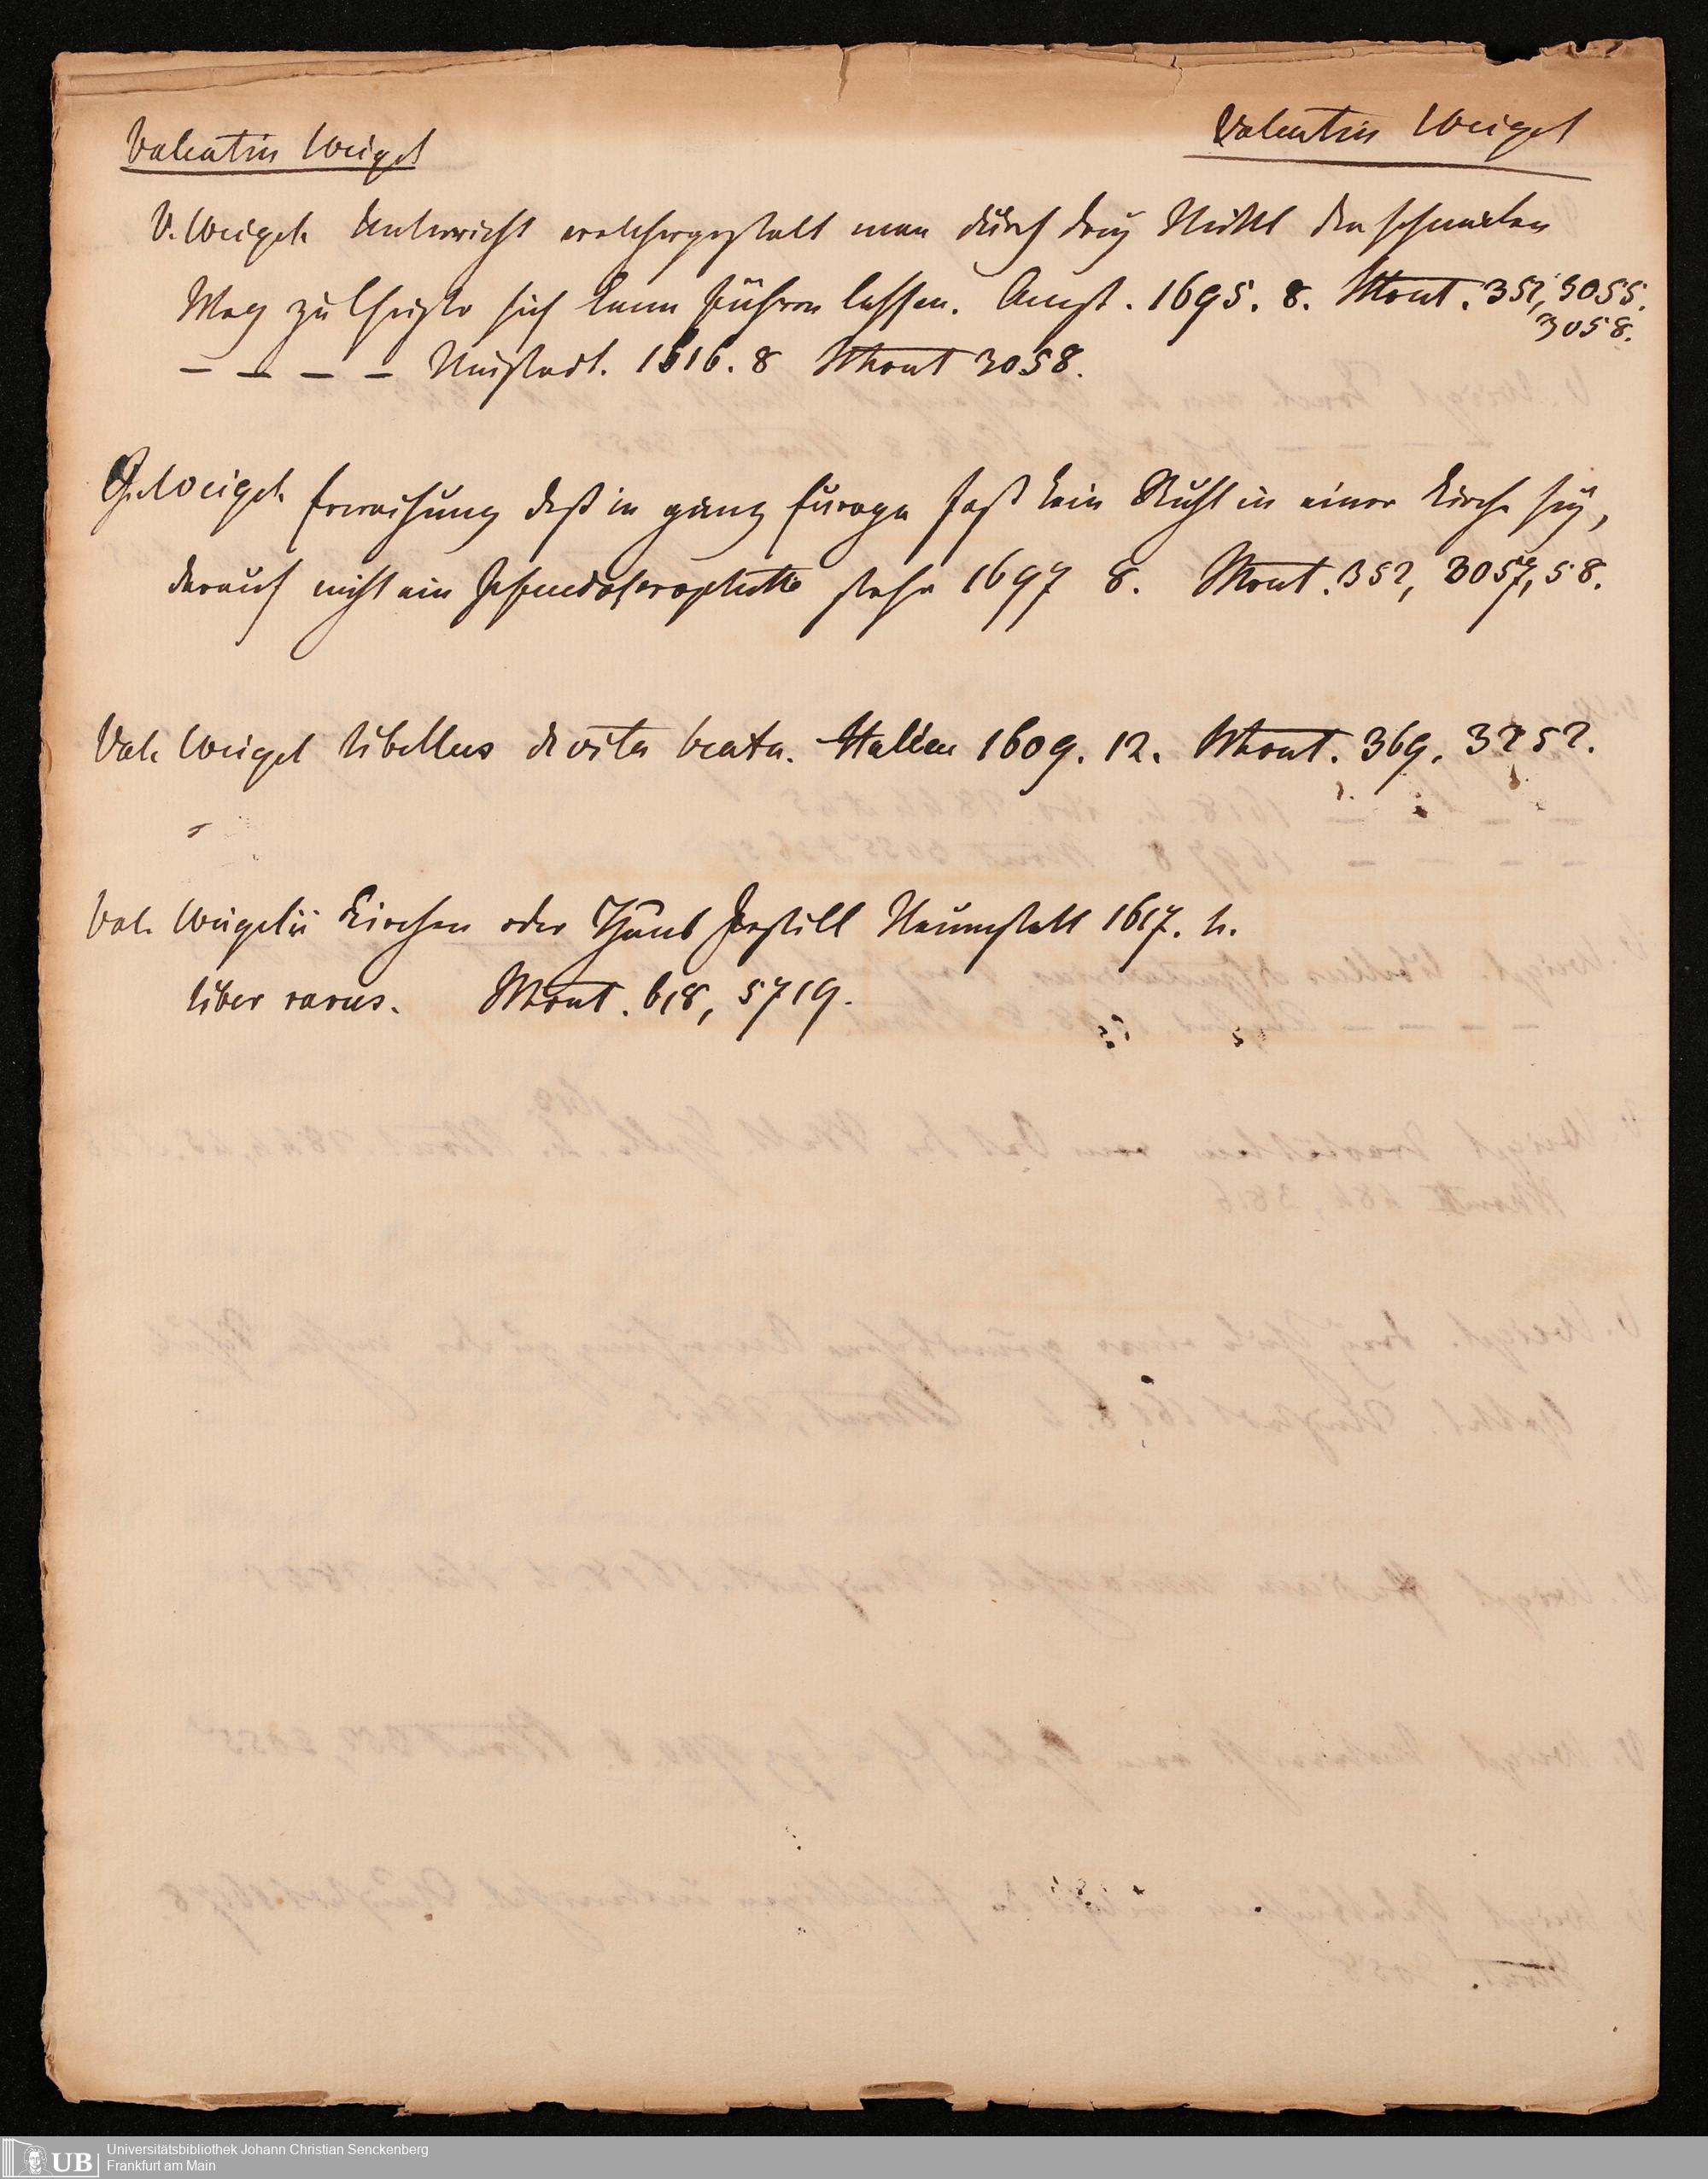 Valentin Weigel
Valentin Weigel
V. Weigel. Unterricht welchergestalt man durch drey Mittel den schmalen
Weg zu Christo sich kann führen lassen. Amst. 1695. 8. Mout. 352, 3055.
3058.
– – – – Neustadt. 1616. 8 Mout 3058.
Weigel. Erweisung daß in ganz Europa fast kein Stuhl in einer Kirche sey,
darauf nicht ein Pseudopropheta stehe 1697 8. Mout. 352, 3057, 58.
Val. Weigel libellus de vita beata. Hallae 1609. 12. Mout. 369, 3252.
Val. Weigelii Kirchen oder Hauß Postill Neuenstatt 1617. 4.
liber rarus. Mout. 618, 5719.
Universitätsbibliothek Johann Christian Senckenberg
UB Frankfurt am Main